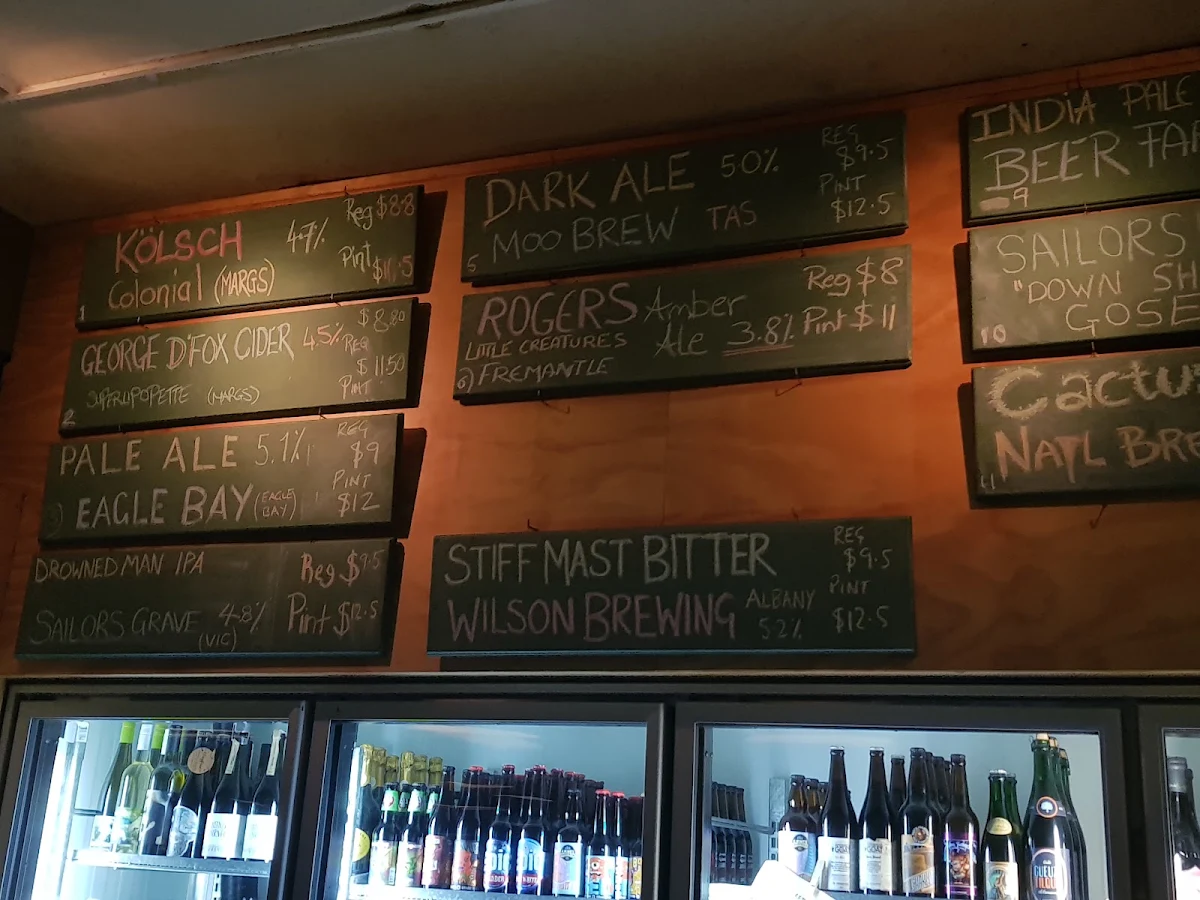 KÖLSCH 4.7% Reg $8.8
Colonial (MARGS) Pint
1
GEORGE D'FOX CIDER 4.5% REG $8.80
(MARGS) PINT $11.50
2
PALE ALE 5.1% REG $9
EAGLE BAY (EAGLE BAY) PINT $12
DROWNED MAN IPA Reg $9.5
SAILORS GRAVE 4.8% Pint $12.5
(VIC)
DARK ALE 5.0% REG $9.5
MOO BREW TAS PINT $12.5
5
ROGERS Amber Reg $8
LITTLE CREATURES Ale 3.8% Pint $11
6) FREMANTLE
STIFF MAST BITTER REG $9.5
WILSON BREWING ALBANY 5.2% PINT $12.5
INDIA PALE
BEER FAR
9
SAILORS
"DOWN SH
GOSE
10
Cactu
NATL BRE
11